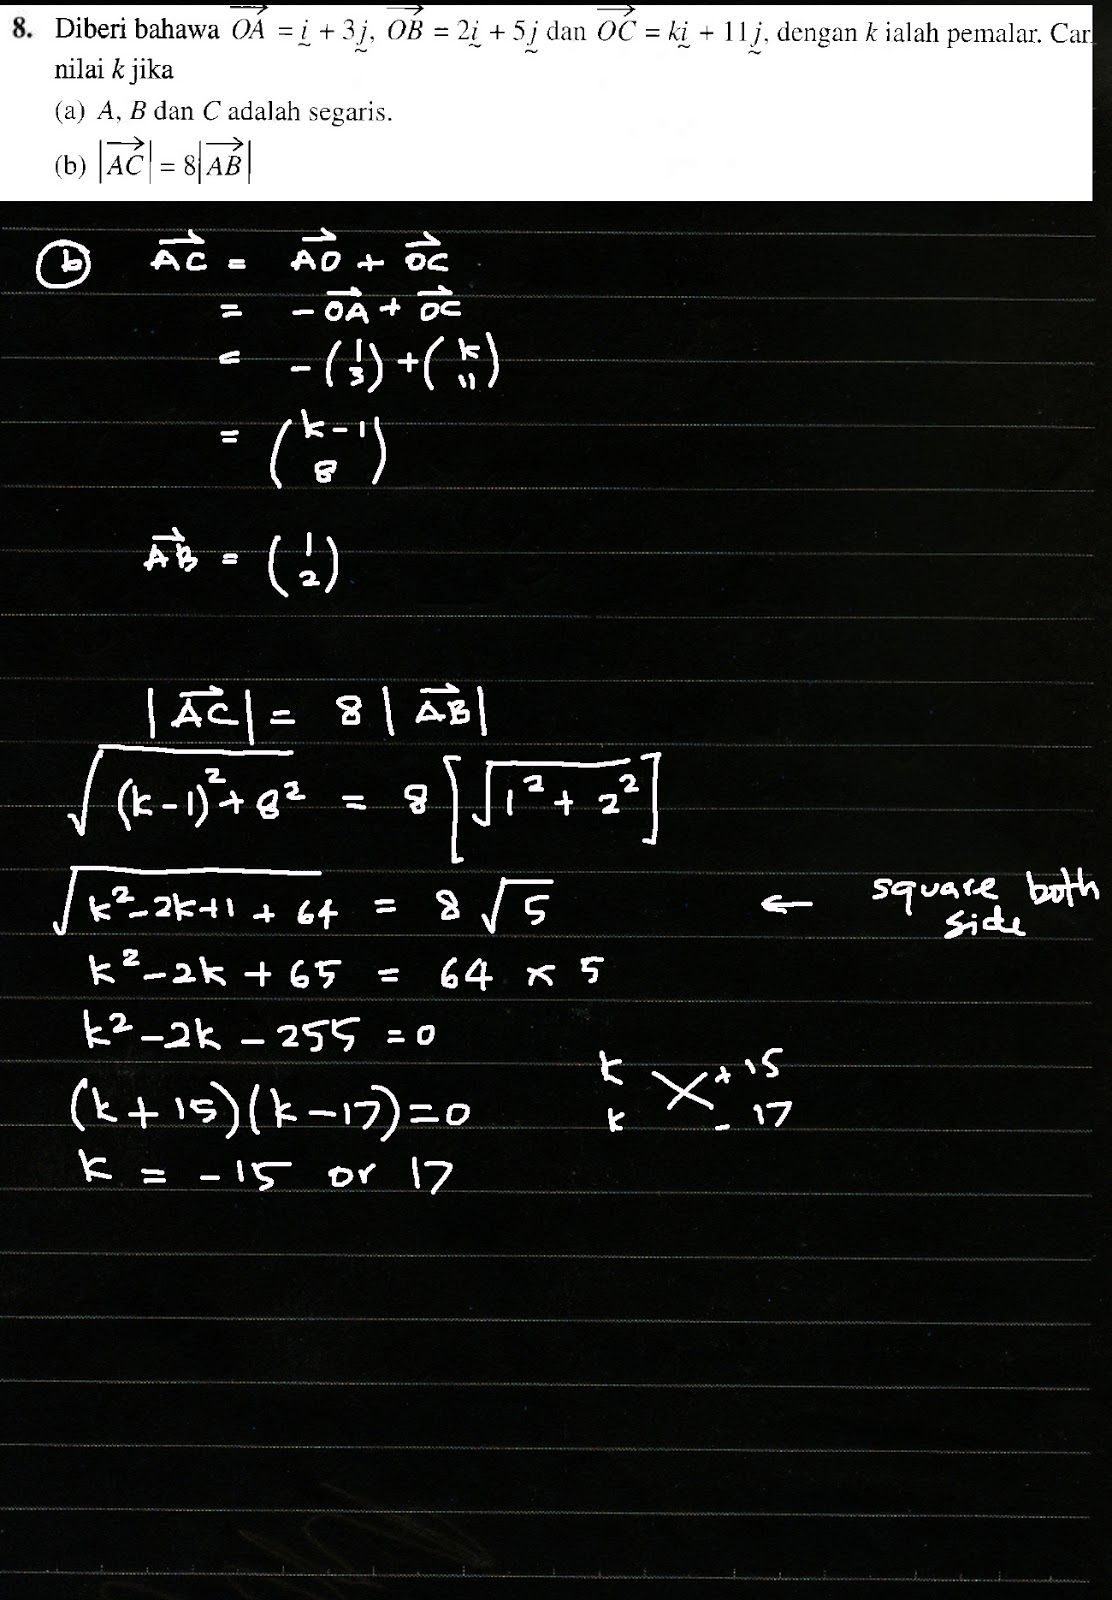 8. Diberi bahawa $\overrightarrow{OA} = \underset{\sim}{i} + 3\underset{\sim}{j}$, $\overrightarrow{OB} = 2\underset{\sim}{i} + 5\underset{\sim}{j}$ dan $\overrightarrow{OC} = k\underset{\sim}{i} + 11\underset{\sim}{j}$, dengan k ialah pemalar. Car
nilai k jika
(a) A, B dan C adalah segaris.
(b) $|\overrightarrow{AC}| = 8|\overrightarrow{AB}|$
(b) $\overrightarrow{AC} = \overrightarrow{AO} + \overrightarrow{OC}$
$= -\overrightarrow{OA} + \overrightarrow{OC}$
$= -\begin{pmatrix}1\\3\end{pmatrix} + \begin{pmatrix}k\\11\end{pmatrix}$
$= \begin{pmatrix}k-1\\8\end{pmatrix}$
$\overrightarrow{AB} = \begin{pmatrix}1\\2\end{pmatrix}$
$|\overrightarrow{AC}| = 8|\overrightarrow{AB}|$
$\sqrt{(k-1)^2 + 8^2} = 8\left[\sqrt{1^2 + 2^2}\right]$
$\sqrt{k^2 - 2k + 1 + 64} = 8\sqrt{5}$ ← square both side
$k^2 - 2k + 65 = 64 \times 5$
$k^2 - 2k - 255 = 0$
k +15
$(k + 15)(k - 17) = 0$
k - 17
k = -15 or 17